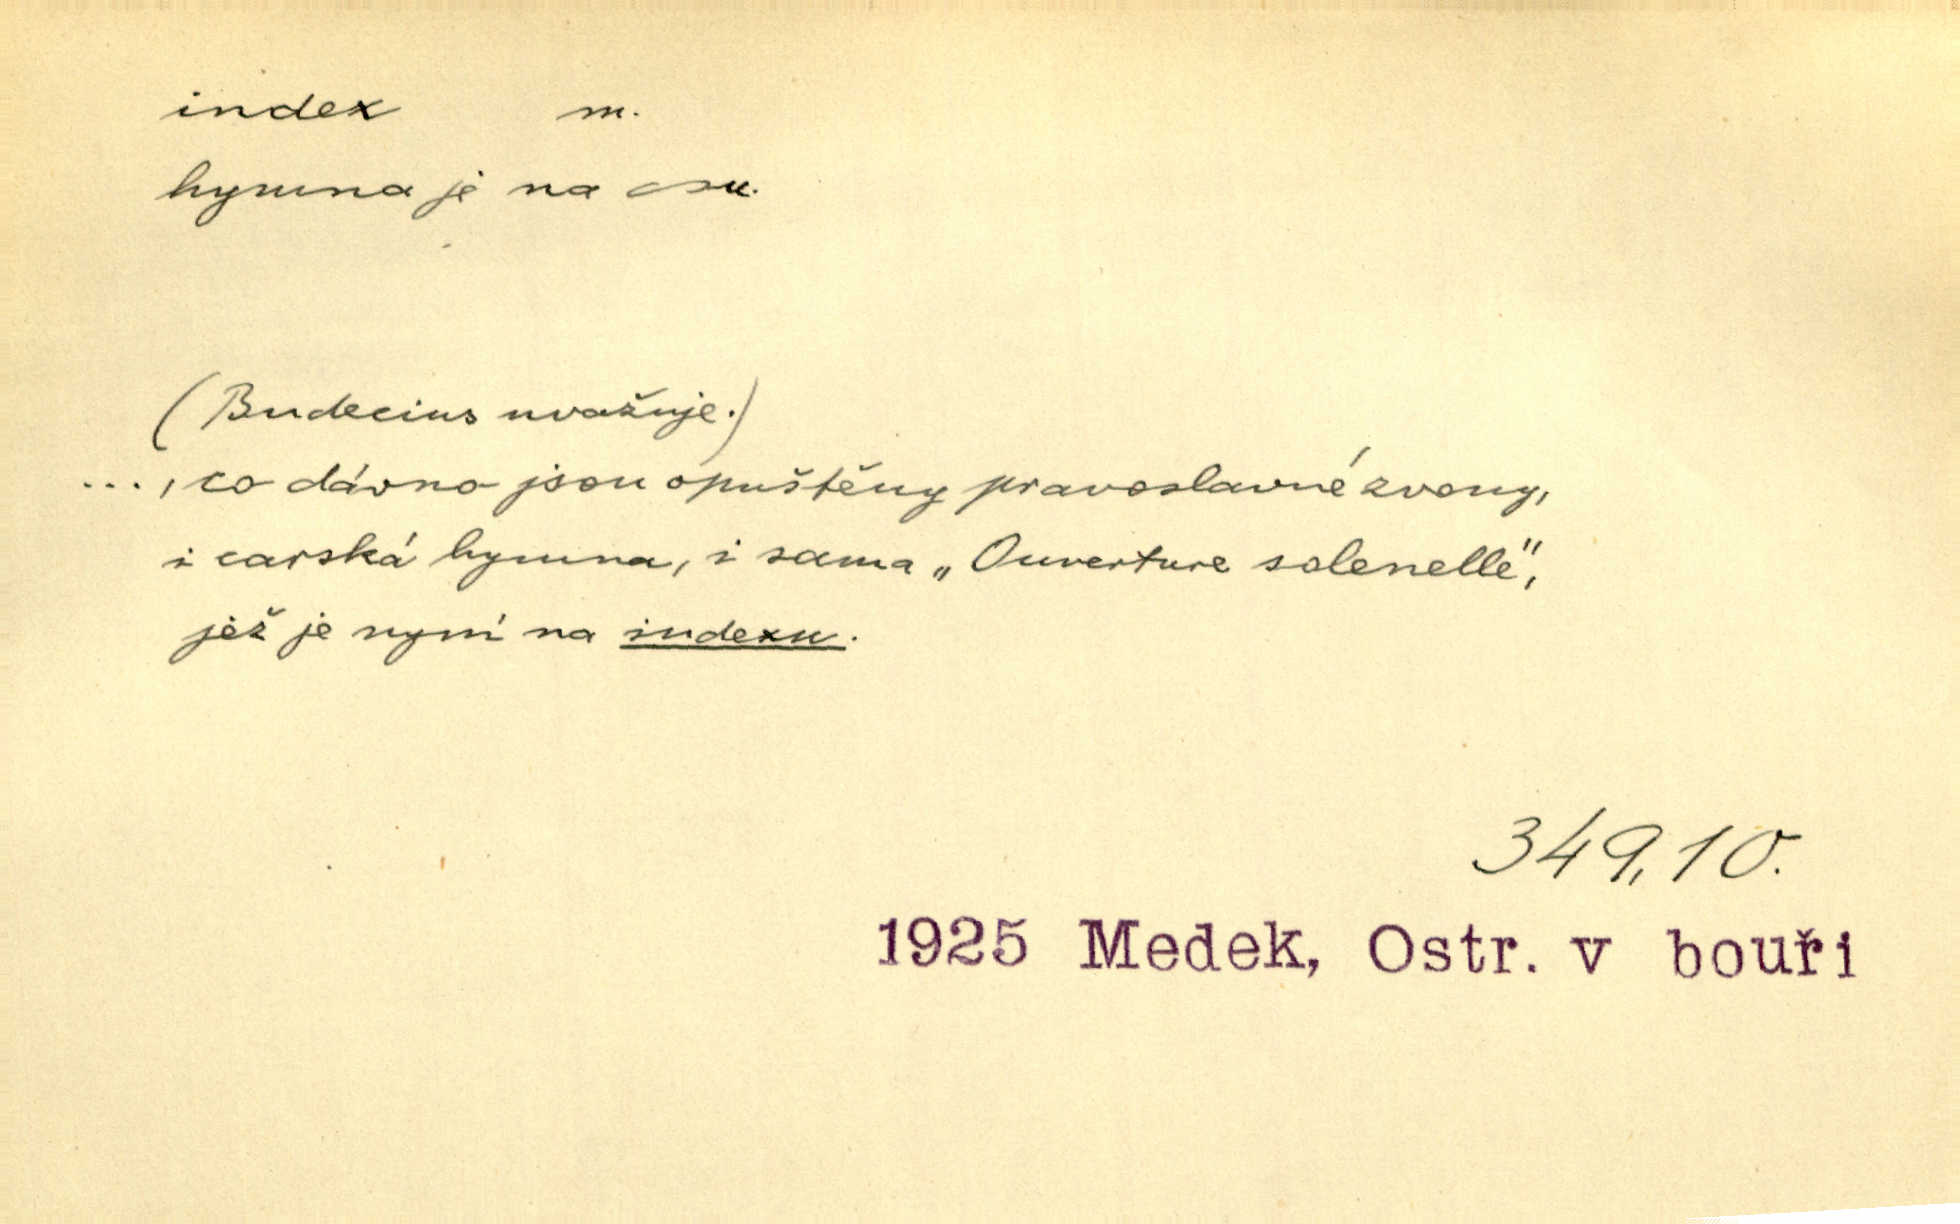 index m.
hymna je na ~xu.
(Budecius uvažuje.)
..., co dávno jsou opuštěny pravoslavné zvony,
i carská hymna, i sama „Ouverture solenelle",
jež je nyní na indexu.
349,10.
1925 Medek, Ostr. v bouři